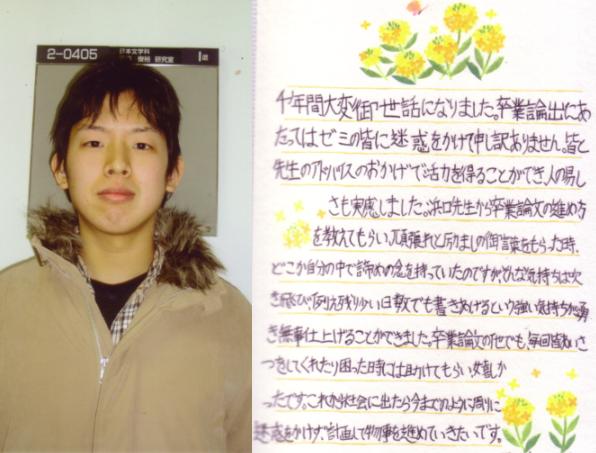 2-0405
日本文学科
俊裕 研究室
年間大変御世話になりました。卒業論出にあ
たってはゼミの皆に迷惑をかけて申し訳ありません。皆と
先生のアドバイスのおかげで活力を得ることができ、人の易し
さも実感しました。浜口先生から卒業論文の進め方
を教えてもらい、頑張れと励ましの御言葉をもらった時、
どこか自分の中で諦めの念を持っていたのですが、そんな気持ちは吹
き飛び、例え残り少い日数でも書きあげるという強い気持ちが湧
き無事仕上げることができました。卒業論文の他でも、毎回皆あいさ
つをしてくれたり困った時には助けてもらい嬉しか
ったです。これから社会に出たら今までのように周りに
迷惑をかけず、計画して物事を進めていきたいです。